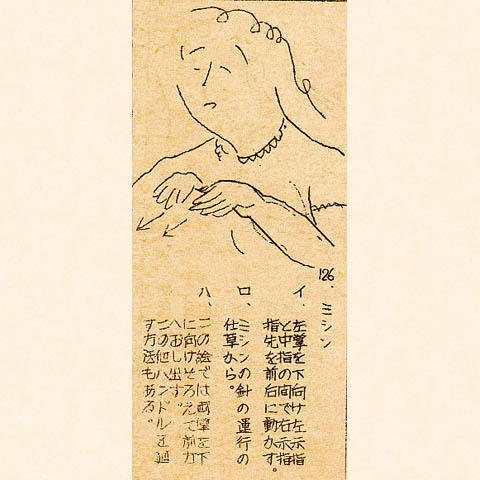 126、ミシン
イ、左掌を下向け左示指
と中指の間で右示指
指先を前后に動かす。
ロ、ミシンの針の運行の
仕草から。
ハ、この絵では両掌を下
に向けそろえて前方
へおし出す。
この他ハンドルを廻
す方法もある。